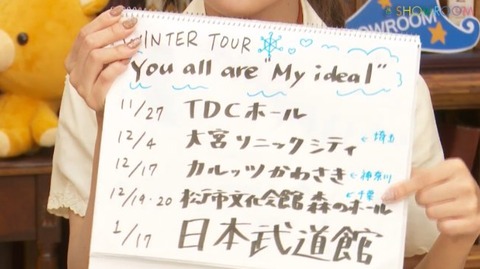 SHOWROOM
SHOWROOM
WINTER TOUR
You all are "My ideal"
11/27 TDCホール
12/4 大宮ソニックシティ ←埼玉
12/17 カルッツかわさき ←神奈川
12/19・20 松戸市文化会館 森のホール ←千葉
1/17 日本武道館